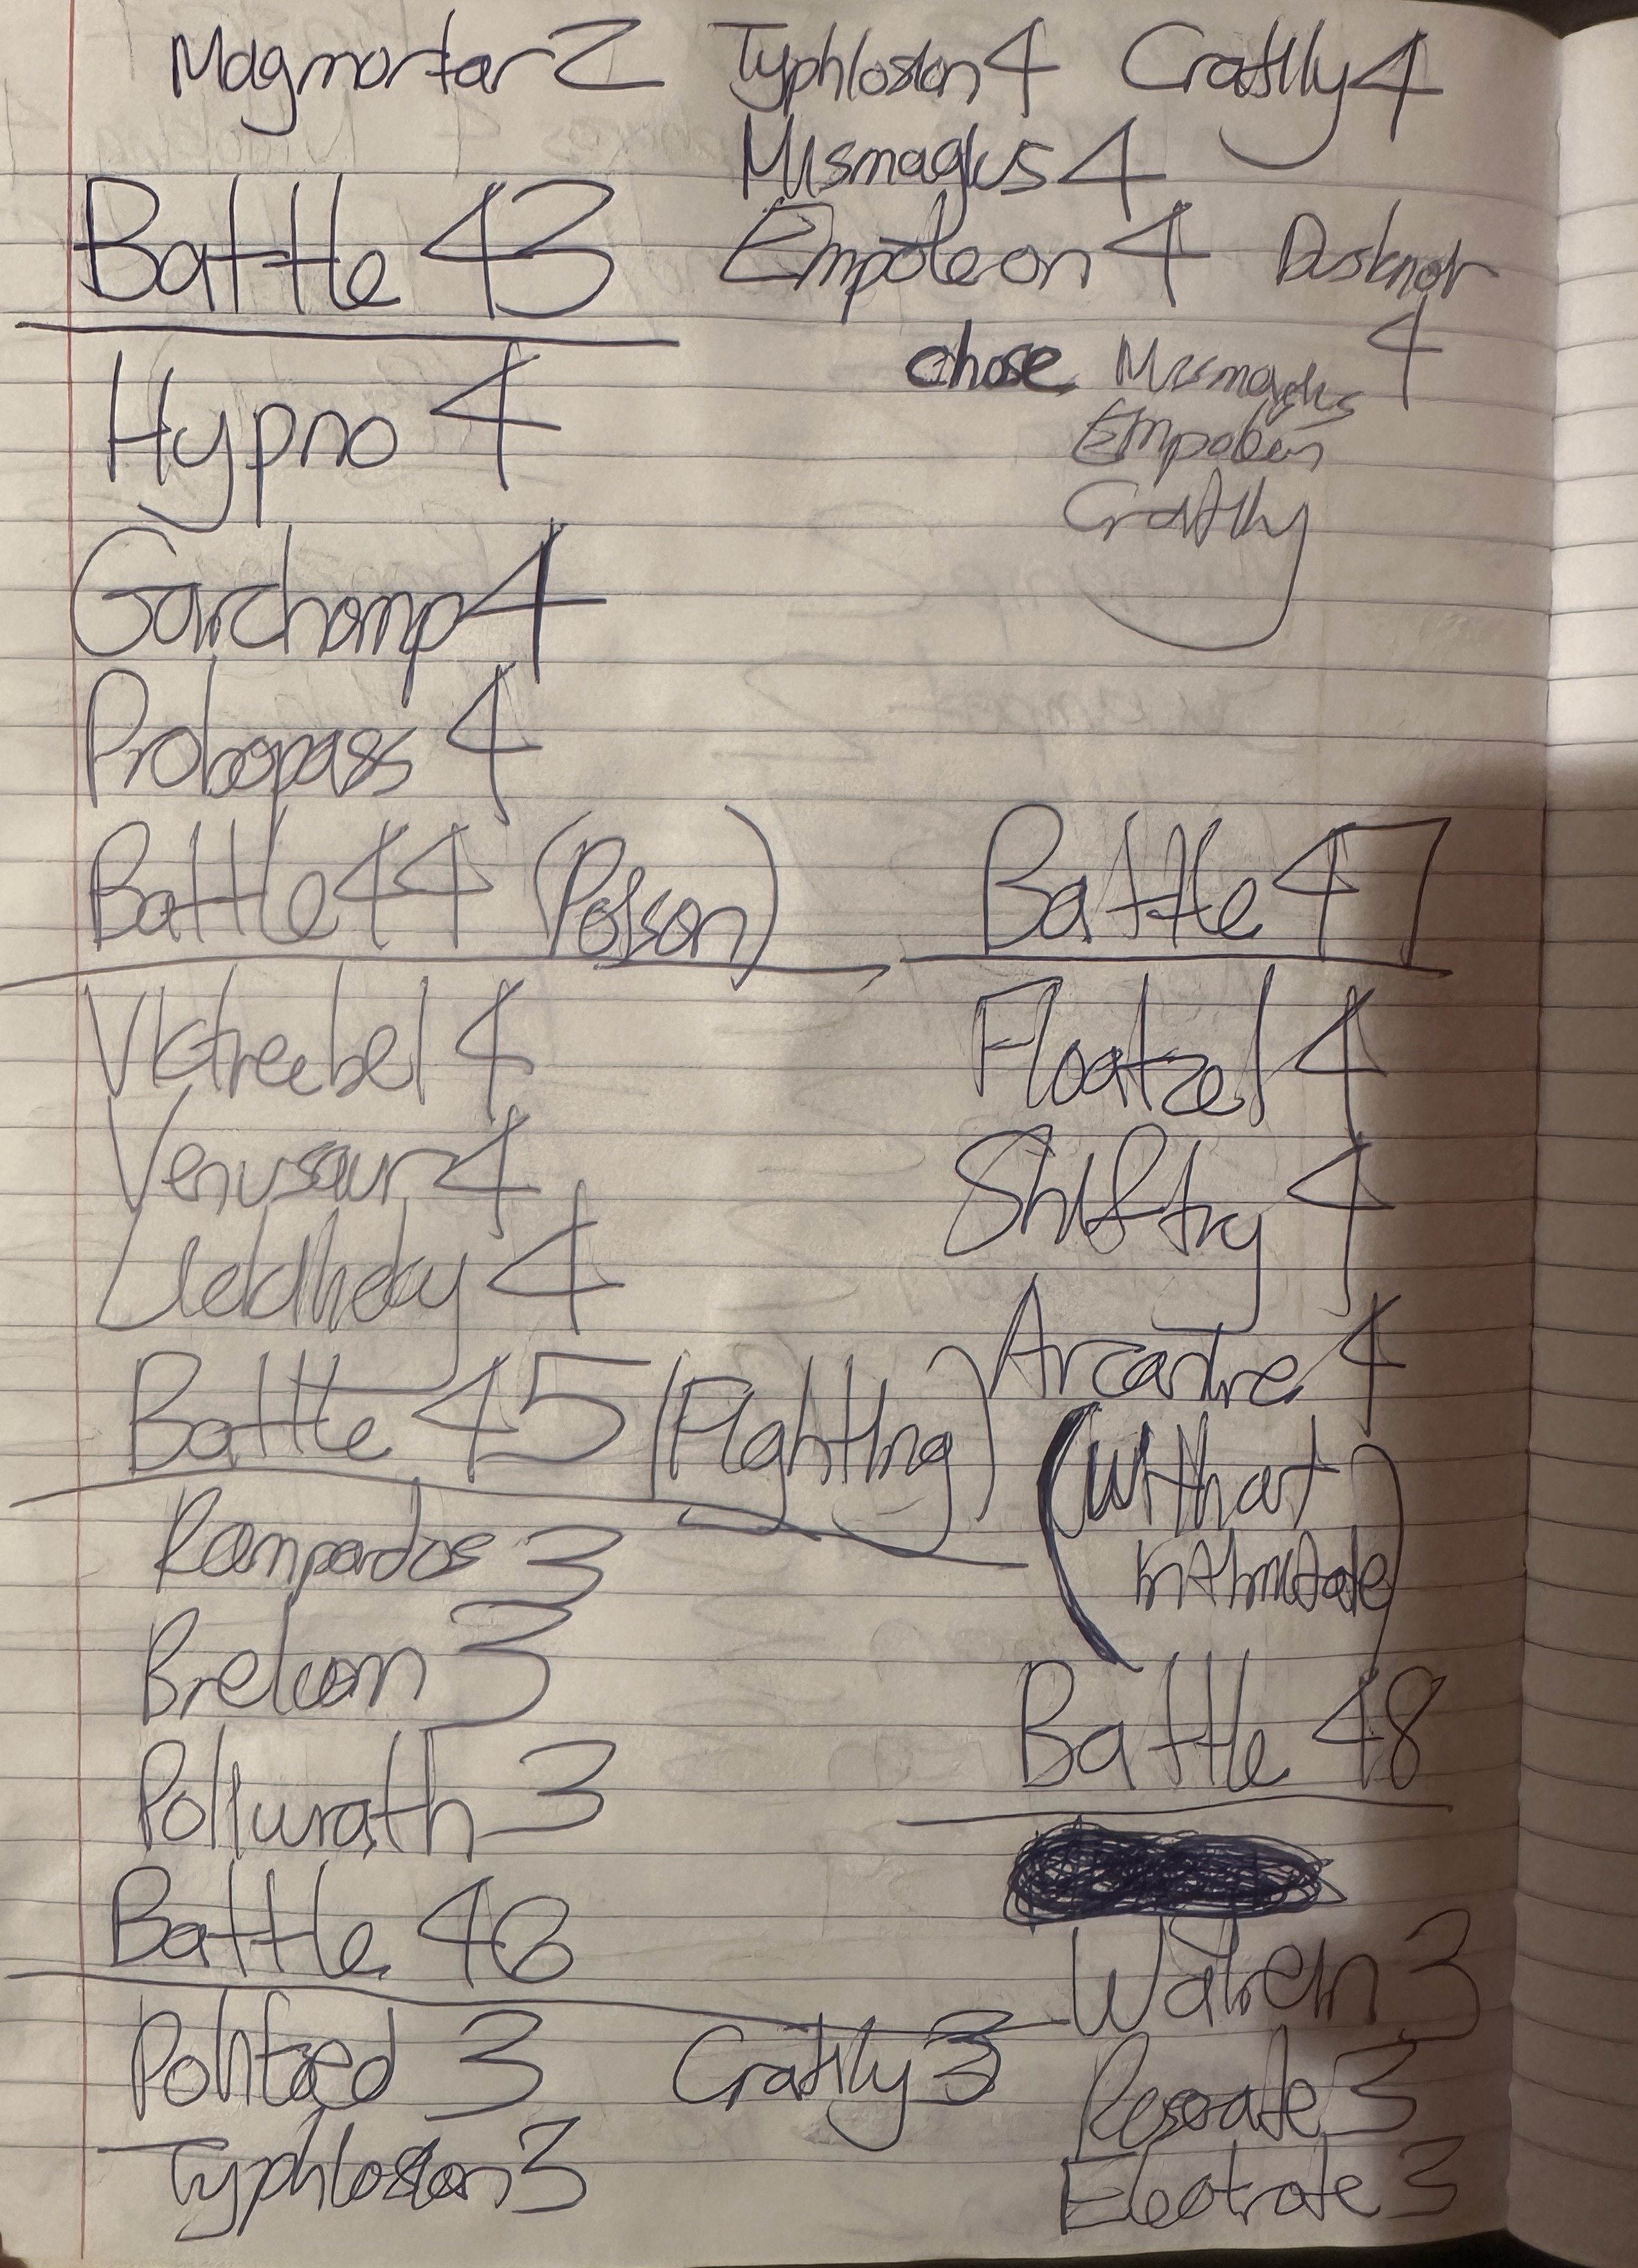 Magmortar 2 Typhlosion 4 Cradily 4
Mismagius 4
Empoleon 4 Dusknoir 4
chose Mismagius
Empoleon
Cradily
Battle 43
Hypno 4
Garchomp 4
Probopass 4
Battle 44 (Poison)
Victreebel 4
Venusaur 4
Battle 45 (Fighting)
Rampardos 3
Breloom 3
Poliwrath 3
Battle 46
Politoed 3 Cradily 3
Typhlosion 3
Battle 47
Floatzel 4
Shiftry 4
Arcanine 4
(without
intimidate)
Battle 48
Walrein 3
Roserade 3
Electrode 3